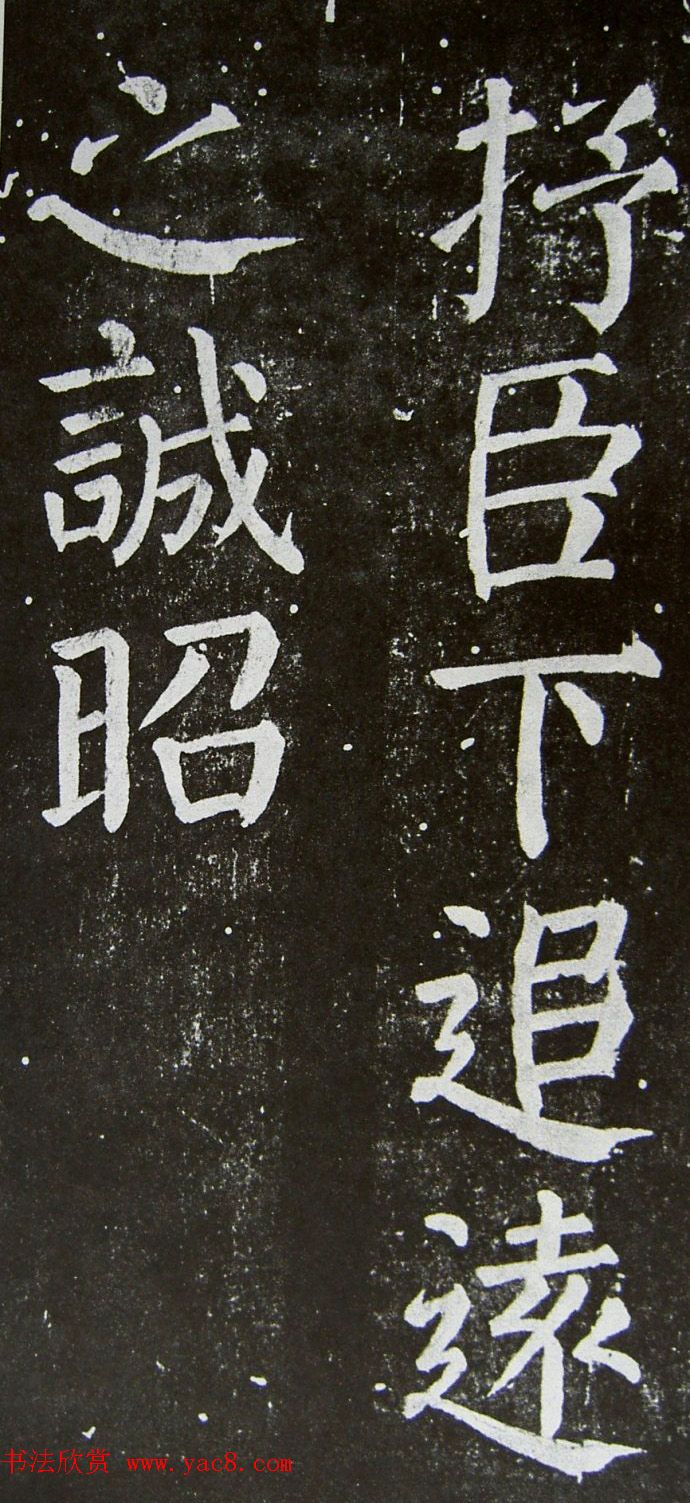 抒臣下追遠
之誠昭
书法欣赏 www.yac8.com